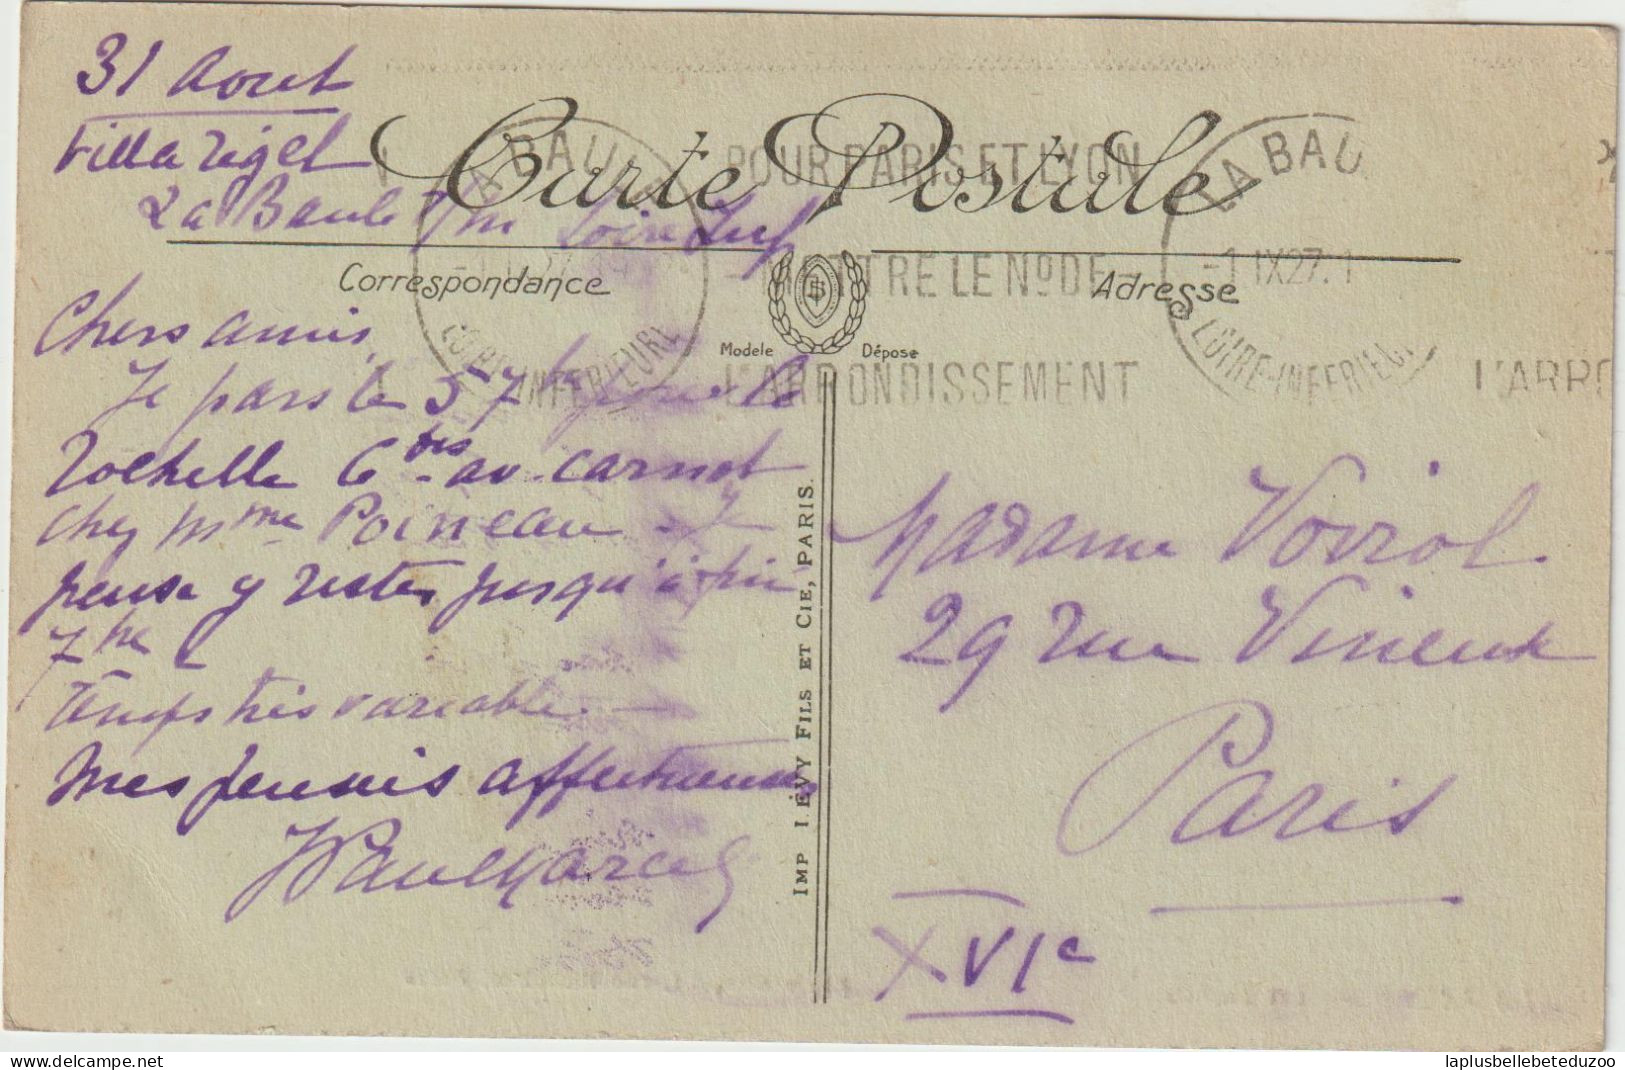 31 Aout
Villa Rigel
La Baule
Carte Postale
Correspondance
Adresse
Modele Déposé
LA BAU
LOIRE-INFERIEURE
POUR PARIS ET LYON
METTRE LE No DE
L'ARRONDISSEMENT
LA BAU
-1 IX 27. 1
LOIRE-INFERIEU
L'ARRO
Chers amis,
Je pars le 5 7bre pour la
Rochelle 6 bis av. Carnot
chez Mme Poineau. Je
pense y rester jusqu'à fin
7bre
temps très variable.
Mes pensées affectueuses
IMP. LÉVY FILS ET CIE, PARIS.
Madame Voirol
29 rue Vineuse
Paris
XVIe
delcampe.net
laplusbellebeteduzoo